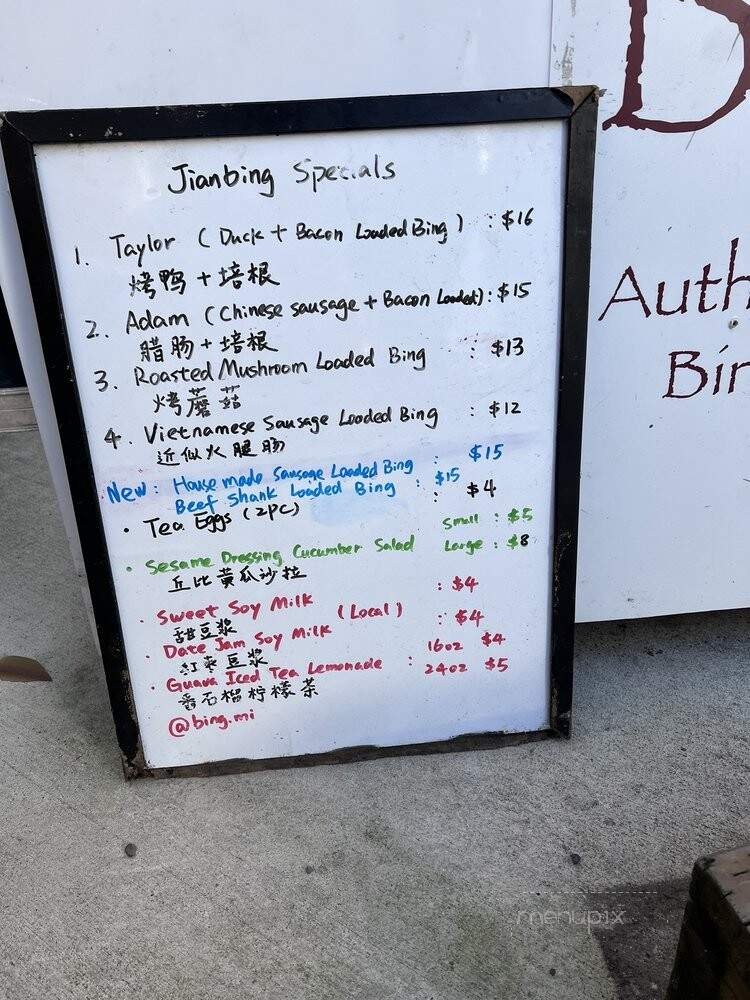 Jianbing Specials
1. Taylor (Duck + Bacon Loaded Bing) : $16
烤鸭 + 培根
2. Adam (Chinese sausage + Bacon Loaded) : $15
腊肠 + 培根
3. Roasted Mushroom Loaded Bing : $13
烤蘑菇
4. Vietnamese Sausage Loaded Bing : $12
近似火腿肠
New: House made Sausage Loaded Bing : $15
Beef Shank Loaded Bing : $15
• Tea Eggs (2pc) : $4
• Sesame Dressing Cucumber Salad Small : $5
Large : $8
丘比黄瓜沙拉
• Sweet Soy Milk (Local) : $4
甜豆浆
• Date Jam Soy Milk : $4
红枣豆浆
• Guava Iced Tea Lemonade : 16oz $4
24oz $5
番石榴柠檬茶
@bing.mi
Auth
Bin
menupix